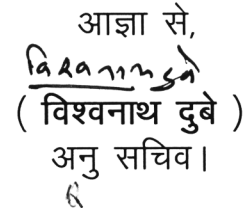 आज्ञा से,
( विश्वनाथ दुबे )
अनु सचिव।